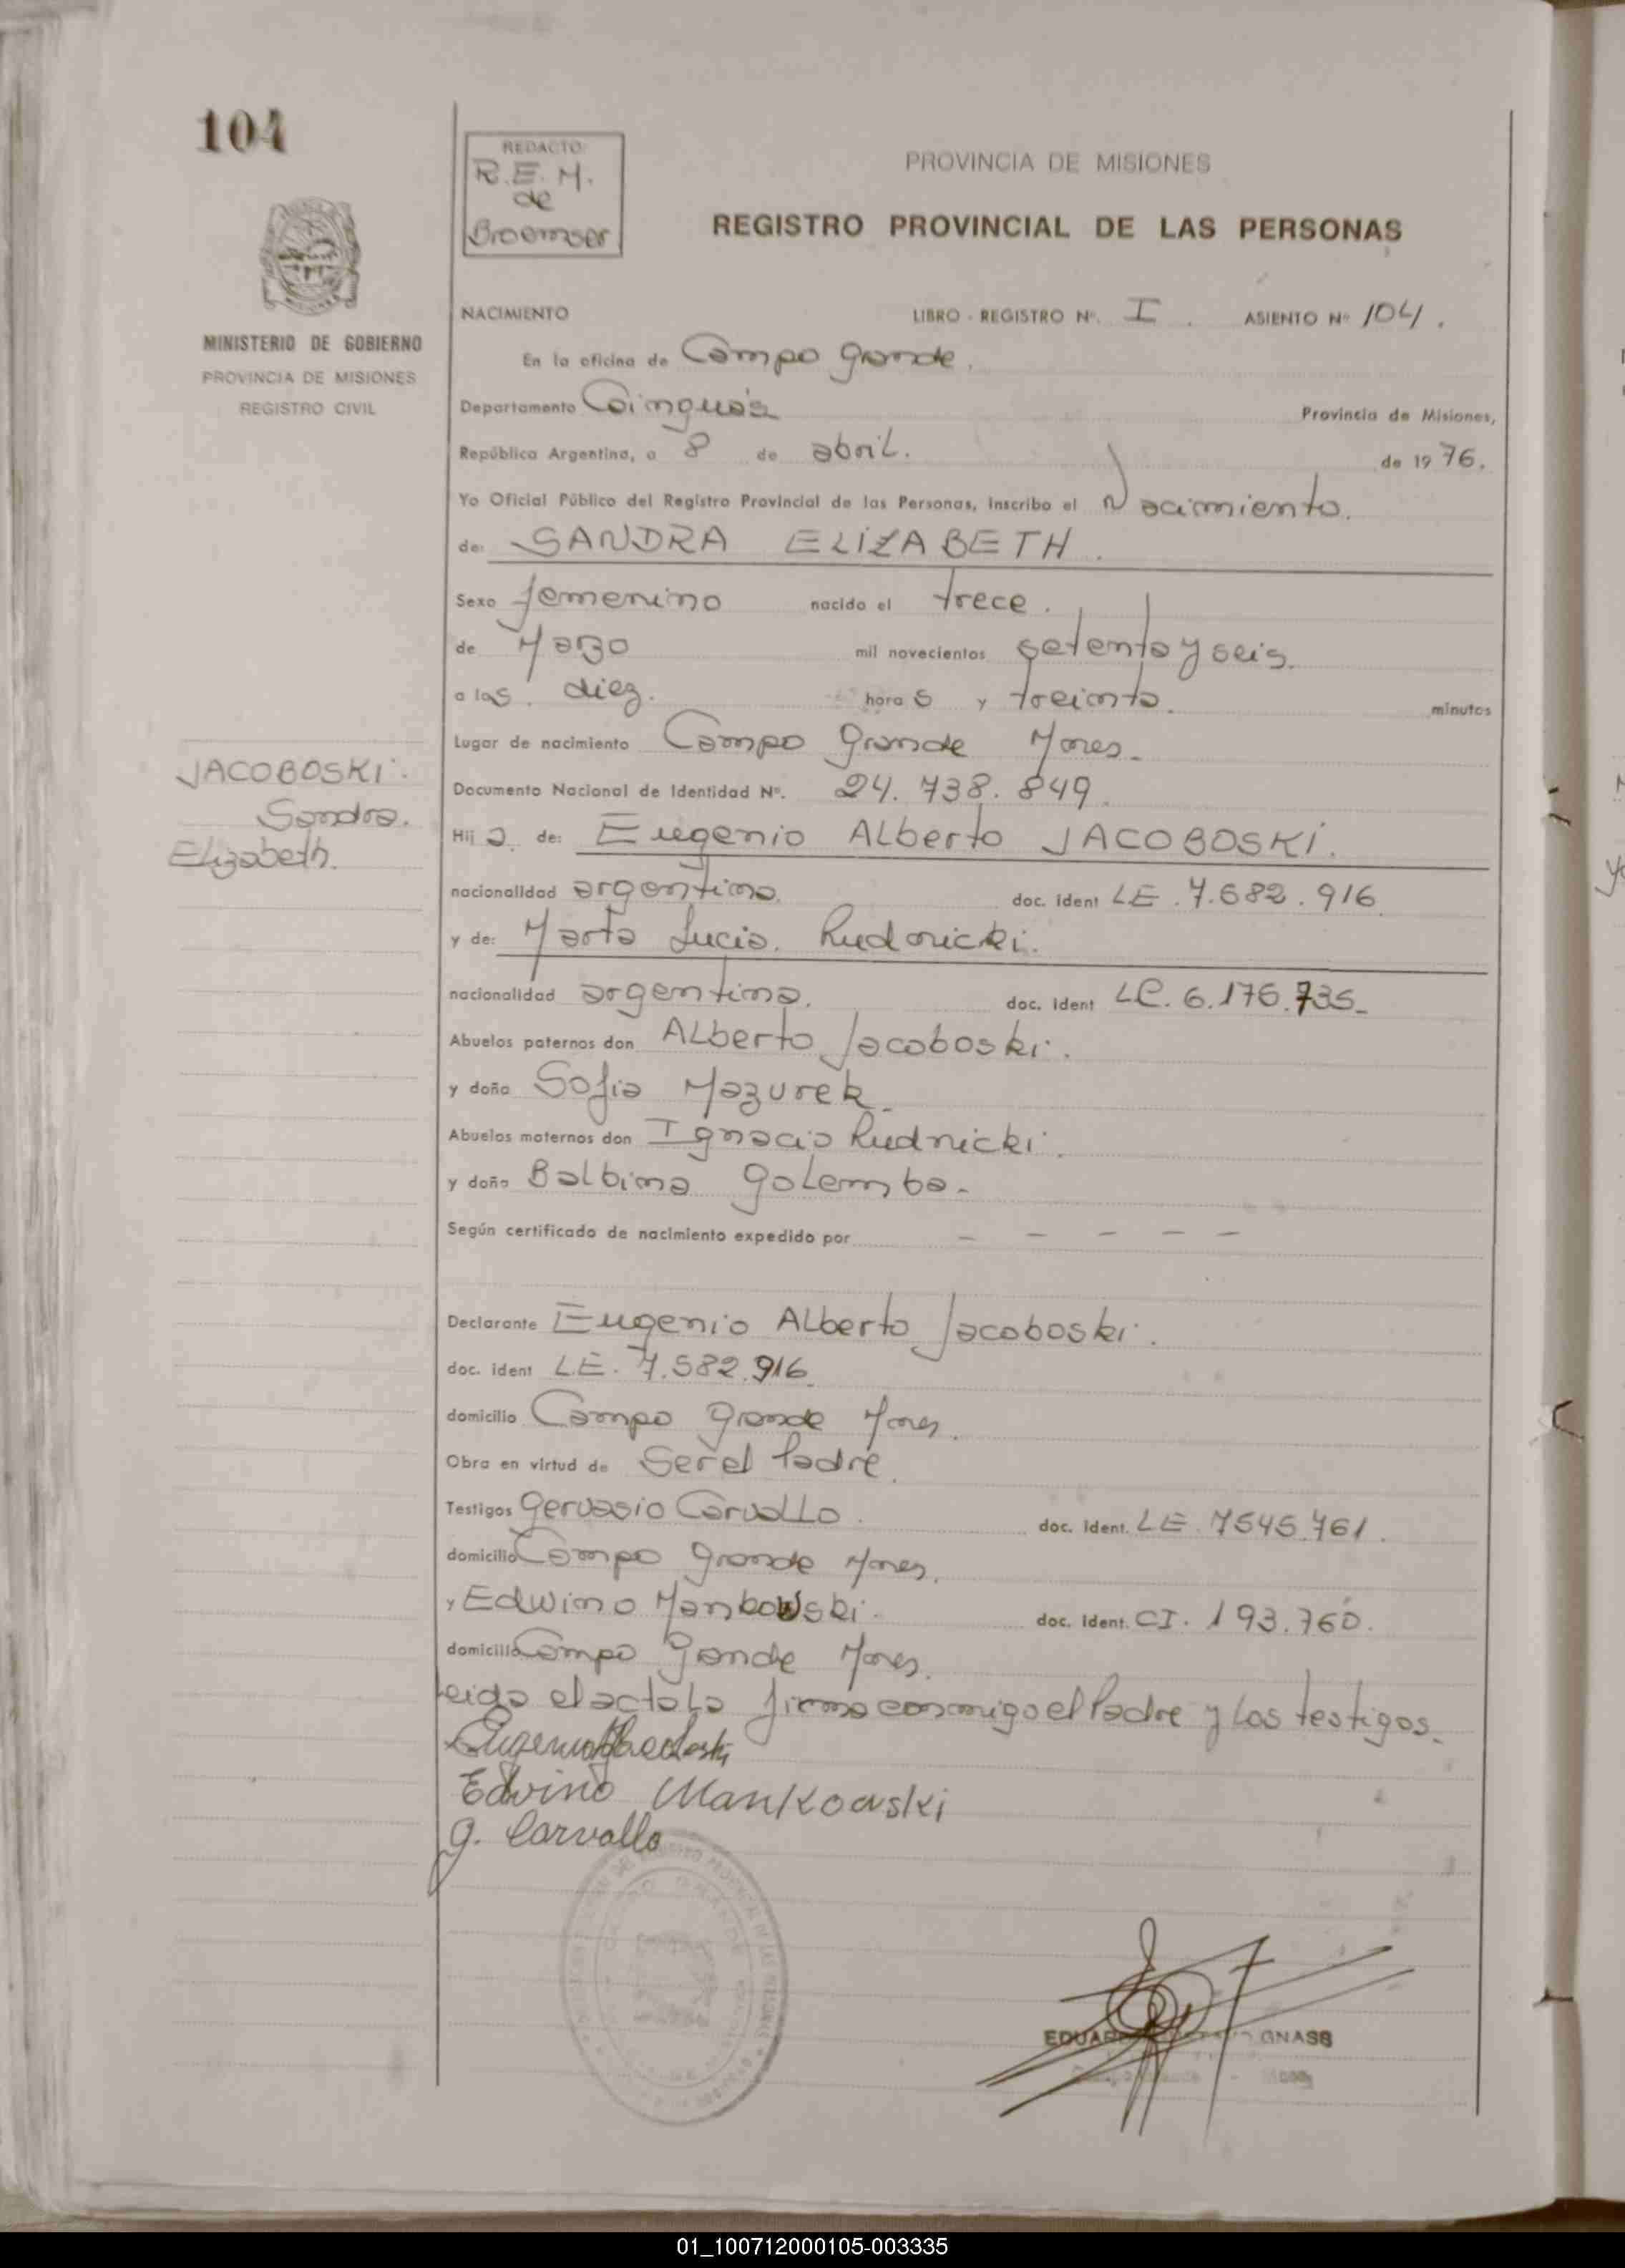 104
REDACTO:
R.E.M.
de
Broemser
PROVINCIA DE MISIONES
REGISTRO PROVINCIAL DE LAS PERSONAS
MINISTERIO DE GOBIERNO
PROVINCIA DE MISIONES
REGISTRO CIVIL
NACIMIENTO LIBRO - REGISTRO Nº. I. ASIENTO Nº 104.
En la oficina de Campo grande.
Departamento Cainguás Provincia de Misiones,
República Argentina, a 8 de abril. de 1976.
Yo Oficial Público del Registro Provincial de las Personas, inscribo el Nacimiento.
de: SANDRA ELIZABETH.
Sexo femenino nacido el trece.
de Marzo mil novecientos setenta y seis.
a las. diez. horas y treinta. minutos
Lugar de nacimiento Campo grande Mnes.
JACOBOSKI.
Sandra.
Elizabeth.
Documento Nacional de Identidad Nº. 24.738.849.
Hija de: Eugenio Alberto JACOBOSKI.
nacionalidad argentina. doc. ident LE.7.682.916
y de: Marta Lucia. Rudnicki.
nacionalidad argentina. doc. ident LC.6.176.735_
Abuelos paternos don Alberto Jacoboski.
y doña Sofia Mazurek_
Abuelos maternos don Ignacio Rudnicki.
y doña Balbina golemba-
Según certificado de nacimiento expedido por - - - - -
Declarante Eugenio Alberto Jacoboski.
doc. ident L.E. 7.582.916.
domicilio Campo grande Mnes.
Obra en virtud de Ser el Padre.
Testigos gervasio Carvallo. doc. ident. LE.7545.761.
domicilio Campo grande Mnes.
y Edwino Mankowski. doc. ident. CI. 193.760.
domicilio Campo grande Mnes.
Leida el acta la firma conmigo el Padre y los testigos.
Eugenio A Jacoboski
Edvino Mankowski
g. Carvallo
EDUAR GNASS
01_100712000105-003335